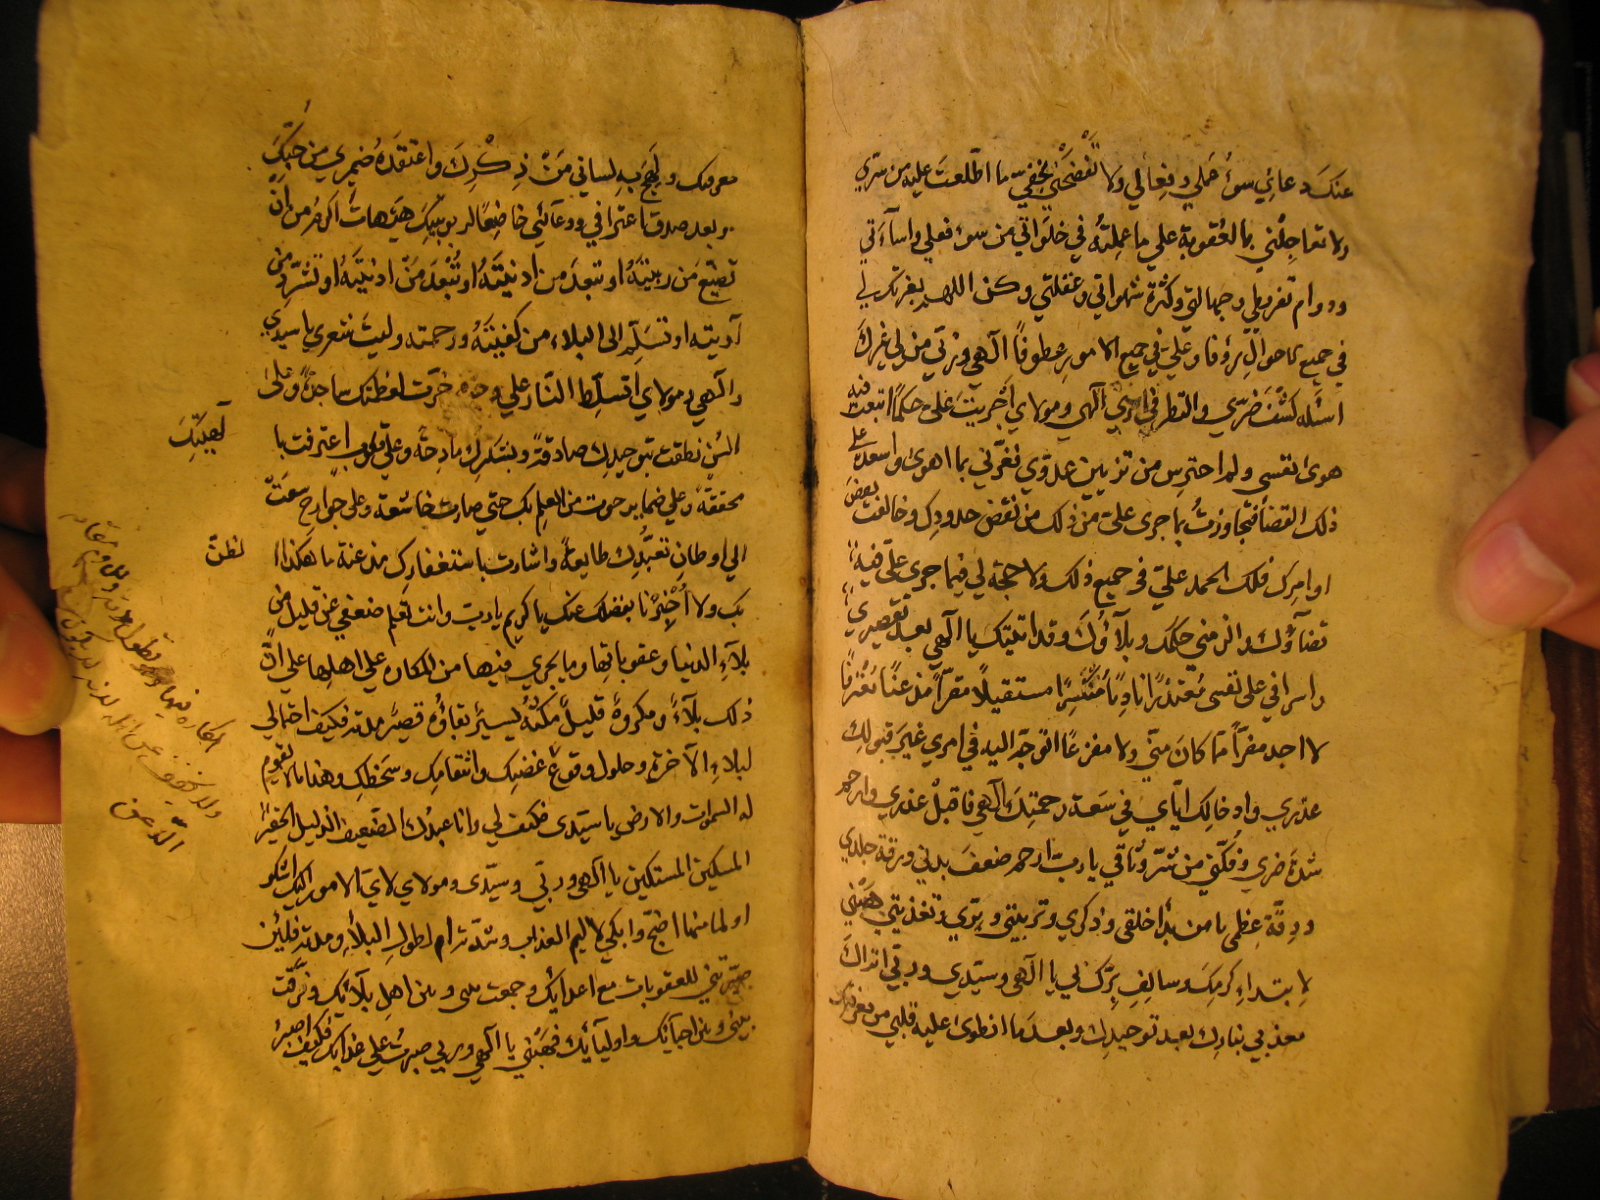 عنك دعائي سوءُ عَملي وفِعالي ولا تَفْضَحْني بِخَفيِّ ما اطّلعتَ عليه من سرّي
ولا تعاجِلْني بالعُقوبة علي ما عملتُه في خلَواتي من سوء فعلي واساءَتي
ودوام تفريطي وجهالتي وكثرة شهواتي وغفلتي وكن اللهم بعزتك لي
في جميع الاحوال رؤفا وعليّ في جميع الامور عطوفاً الهي وربّي من لي غيرك
اسئله كشف ضرّي والنظر في امري الهي ومولاي اجريتَ علي حكماً اتبعت فيه
هوى نفسي ولم احترس من تزيين عدوّي فغرّني بما اهوى واسعده على
ذلك القضاء فتجاوزتُ بما جرى عليّ من ذلك من نقض حدودك وخالفت بعض
اوامرك فلك الحمد عليّ في جميع ذلك ولا حجة لي فيما جرى عليّ فيه
قضاؤك والزمني حكمك وبلاؤك وقد اتيتك يا الهي بعد تقصيري
واسرافي على نفسي مُعتذراً نادماً مُنكسِرًا مستقيلًا مقرّاً مذعنًا مُعْترفًا
لا اجد مفرّاً ممّا كانَ منّي ولا مفزعًا اتوجّه اليه في امري غيرَ قبولك
عذري وادخالك ايّاي في سَعة رحمتِك الهي فاقبلْ عذري وارحم
شدّة ضري وفُكّني من شدّ وَثاقي يا ربّ ارحم ضعفَ بدني ورقة جلدي
ودِقّة عظمي يا من بدأ خلقي وذكري وتربيتي وبرّي وتغذيتي هَبْني
لابتداءِ كَرَمِكَ وسالفِ بِرّك بي يا الهي وسيّدي وربّي اتراكَ
معذبي بنارك بعد توحيدك وبعدَ ما انطوى عليه قلبي من معرفتك
معرفتك ولَهِجَ بِه لساني مَنْ ذِكْرِكَ واعْتقدَهُ ضميري من حُبّكَ
وبعد صدق اعترافي ودعائي خاضِعًا لربوبيّتِكَ هَيْهاتَ انت اكرمُ من ان
تضيّع مَن ربيْتهُ او تبعدَ من ادنيْتَهُ او تُبْعدَ مَنْ ادنيتَهُ او تُشَرّد من
آويته او تُسَلّم الى البلاء من كفيتَهُ ورحمته وليتَ شعري يا سيّدي
والهي ومولاي اتسلّط النّار علي وجوه خرّت لعظمتك ساجدةً وعلى
السُنٍ نطقت بتوحيدك صادقةً وبشكرك مادِحةً وعلى قلوب اعترفت با
لهيّتِكَ
محققةً وعلى ضماير حوت من العلم بك حتّى صارت خاشعةً وعلى جوارح سعَت
الى اوطانِ تعبُّدِك طايعةً واشارت باستغفارك مذعنة ما هكذا ا
لظنّ
بك ولا اُخْبِرْنا بفضلك عنك يا كريم يا رب وانت تعلم ضعفي عن قليل من
بلاءِ الدنيا وعقوباتها وما يجري فيها من المكاره على اهلها على انّ
ذلك بلاءٌ ومكروهٌ قليلٌ مكثهُ يسيرٌ بقاؤه قصيرٌ مدته فكيف احتمالي
لبلاءِ الآخرة وحلول وقوع غضبِك وانتقامِك وسَخطِك وهذا ما لا تقوم
له السموات والارض يا سيّدى فكيف لي وانا عبدُك الضعيف الذليل الحقيرُ
المسكين المستكين يا الهي وربّي وسيّدى ومولاي لايّ الامور اليك اشكو
او لما منها اضجّ وابكي لاليم العذاب وشدّته ام لطول البلاءِ ومدته فلئن
صيّرتني للعقوبات مع اعدائك وجمعت بيني وبين اهل بلائك وفرّقت
بيني وبين احبّائك واوليائك فهَبْني يا الهي وربي صبرتُ على عذابك فكيف اصبرُ